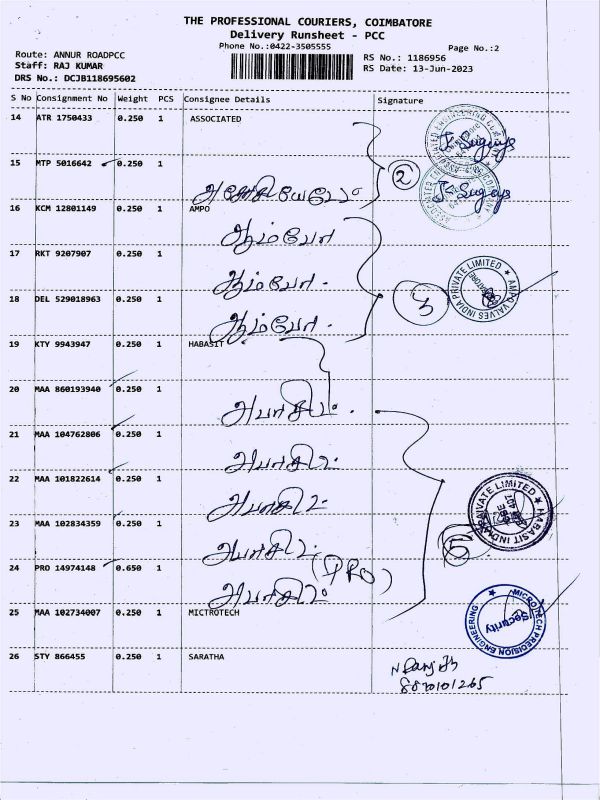 THE PROFESSIONAL COURIERS, COIMBATORE
Delivery Runsheet - PCC
Phone No.:0422-3505555
Page No.:2
Route: ANNUR ROADPCC
Staff: RAJ KUMAR
DRS No.: DCJB118695602
RS No.: 1186956
RS Date: 13-Jun-2023
S No Consignment No Weight PCS Consignee Details Signature
14 ATR 1750433 0.250 1 ASSOCIATED
15 MTP 5016642 0.250 1
2
16 KCM 12801149 0.250 1 AMPO
ஆம்போ
17 RKT 9207907 0.250 1
ஆம்போ
AMPO VALVES INDIA PRIVATE LIMITED
18 DEL 529018963 0.250 1
3
ஆம்போ
19 KTY 9943947 0.250 1 HABASIT
20 MAA 860193940 0.250 1
அபாசிட்
21 MAA 104762806 0.250 1
அபாசிட்
22 MAA 101822614 0.250 1
அபாசிட்
HABASIT PRIVATE LIMITED
23 MAA 102834359 0.250 1
அபாசிட்
5
24 PRO 14974148 0.650 1
(PRO)
அபாசிட்
25 MAA 102734007 0.250 1 MICTROTECH
MICROTECH PRECISION ENGINEERING
Security
26 STY 866455 0.250 1 SARATHA
8870101265